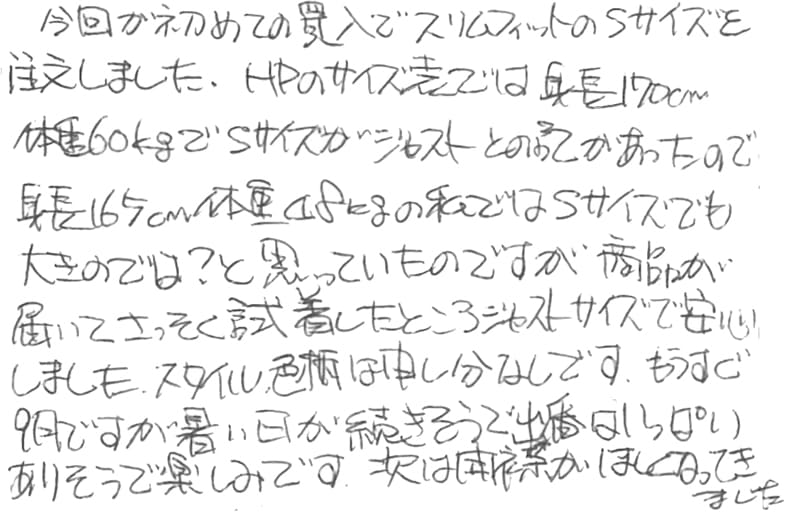 今回が初めての買入でスリムフィットのSサイズを
注文しました.HPのサイズ表では身長170cm
体重60kgでSサイズがジャストとの記でがあったので
身長165cm体重48kgの私ではSサイズでも
大きのでは?と思っていものですが商品が
届いてさっそく試着したところジャストサイズで安心
しました.スタイル,色柄は申し分なしです.もうすぐ
9月ですが暑い日が続きそうで出番はいっぱい
ありそうで楽しみです.次は開襟がほしくなってき
ました